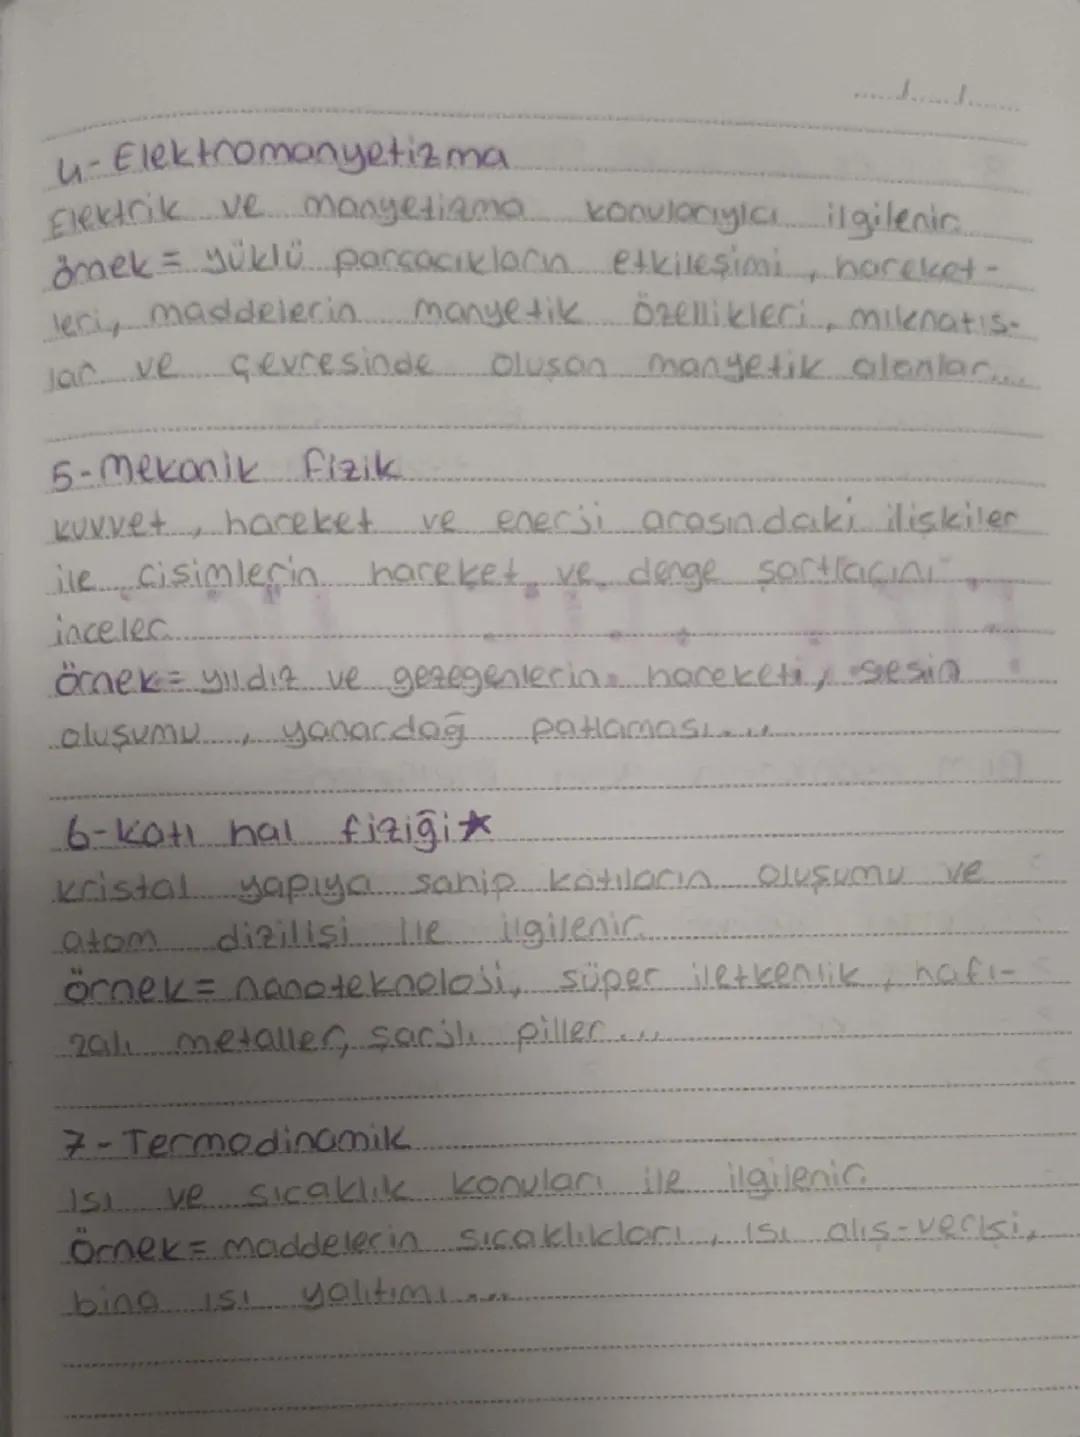 4-Elektromanyetizma
Elektrik ve manyetizma konularıyla ilgilenir.
örnek= yüklü parçacıkların etkileşimi, hareket-
leri, maddelerin manyetik özellikleri, mıknatıs-
lar ve çevresinde oluşan manyetik alanlar...
5-Mekanik Fizik
kuvvet, hareket ve enerji arasındaki ilişkiler
ile cisimlerin hareket ve denge şartlarını
inceler.
Örnek= yıldız ve gezegenlerin hareketi, sesin
oluşumu, yanardağ patlaması...
6-Katı hal fiziği★
kristal yapıya sahip katıların oluşumu ve
atom dizilişi ile ilgilenir.
örnek= nanoteknoloji, süper iletkenlik, hafı-
zalı metaller, şarjlı piller...
7-Termodinamik
ısı ve sıcaklık konuları ile ilgilenir.
Örnek= maddelerin sıcaklıkları, ısı alış-verişi,
bina ısı yalıtımı...